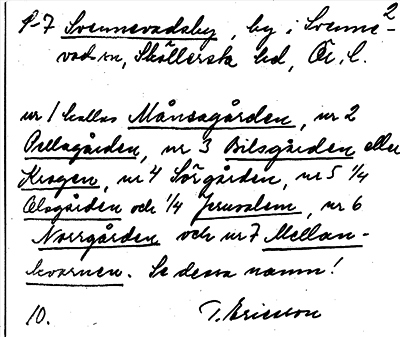 2
1-7 Svennevadsby, by i Svenne-
vads sn, Sköllersta hd, Ör. l.
nr 1 kallas Månsagården, nr 2
Pellagården, nr 3 Bilsgården eller
Krogen, nr 4 Sörgården, nr 5 1/4
Olsgården och 1/4 Jerusalem, nr 6
Norrgården och nr 7 Mellan-
kvarnen. Se dessa namn!
10. T. Ericsson